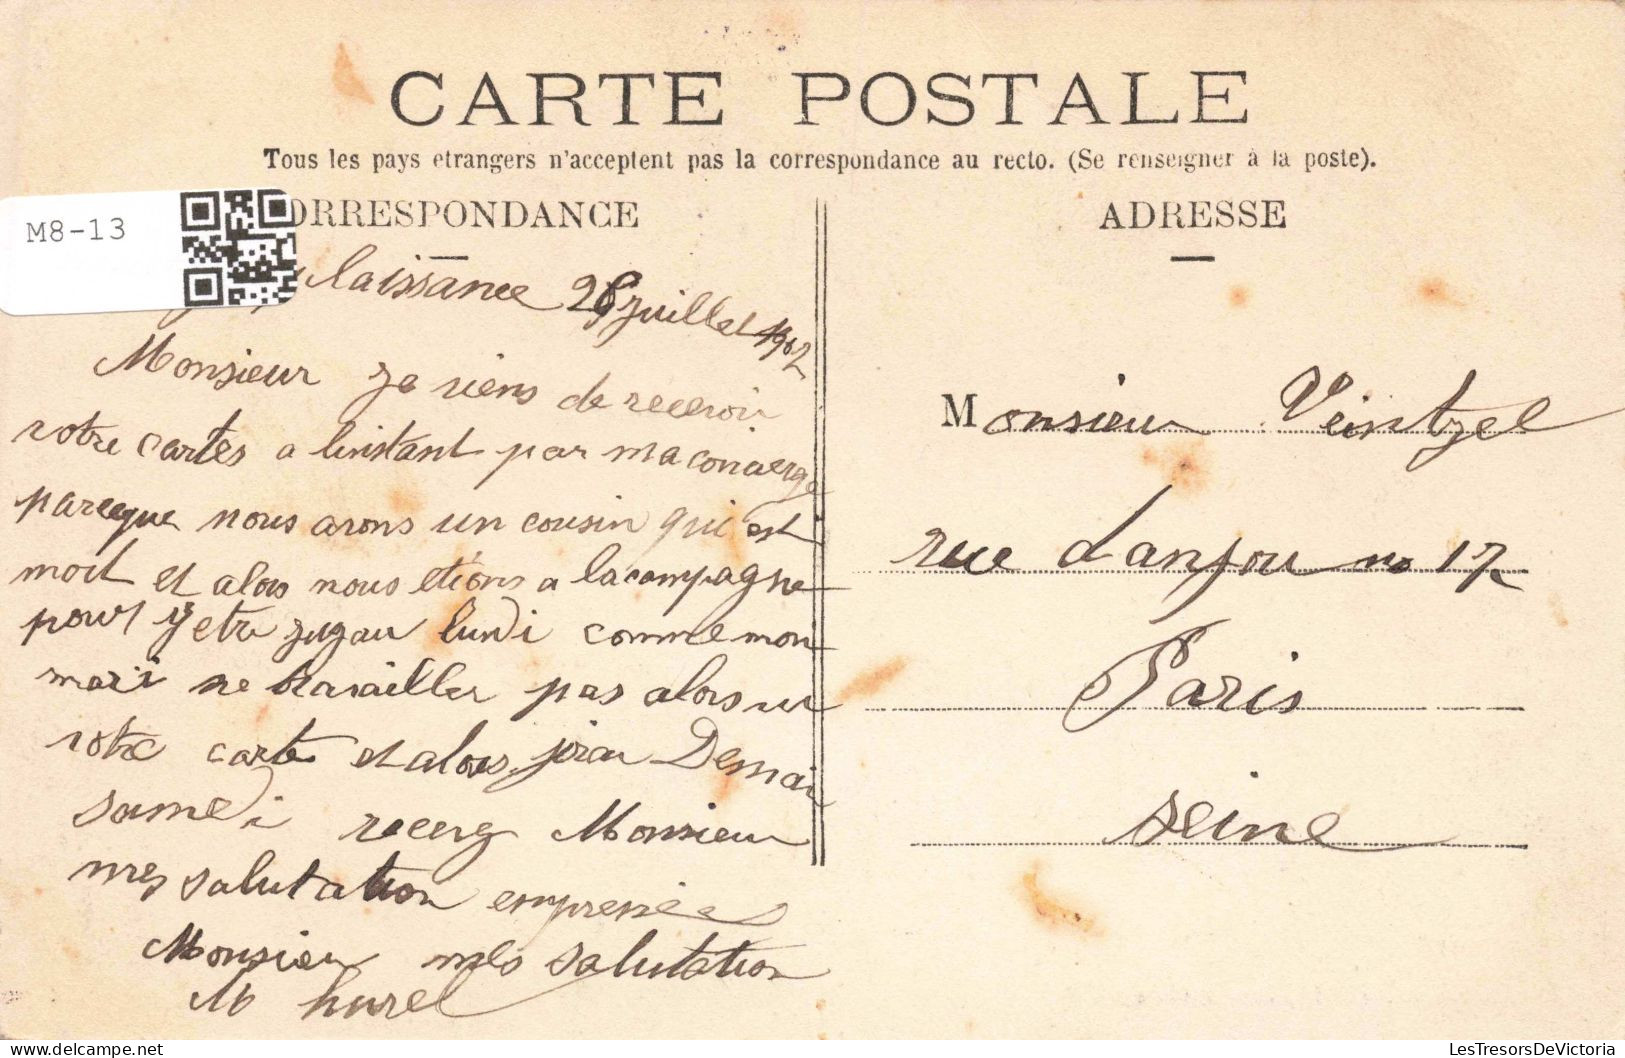 CARTE POSTALE
Tous les pays etrangers n'acceptent pas la correspondance au recto. (Se renseigner à la poste).
M8-13
ORRESPONDANCE
ADRESSE
laissance 28 juillet 1912
Monsieur je viens de recevoir
votre cartes a linstant par ma concierge
parceque nous avons un cousin qui est
mort et alors nous etions a la campagne
pour y etre jusqau lundi comme mon
mari ne travailler pas alors
votre carte et alors jirai Demai
samedi recevez Monsieur
mes salutation empressées
Monsieur mes salutation
M hurel
Monsieur Veintzel
rue danjou no 17
Paris
seine
LesTresorsDeVictoria